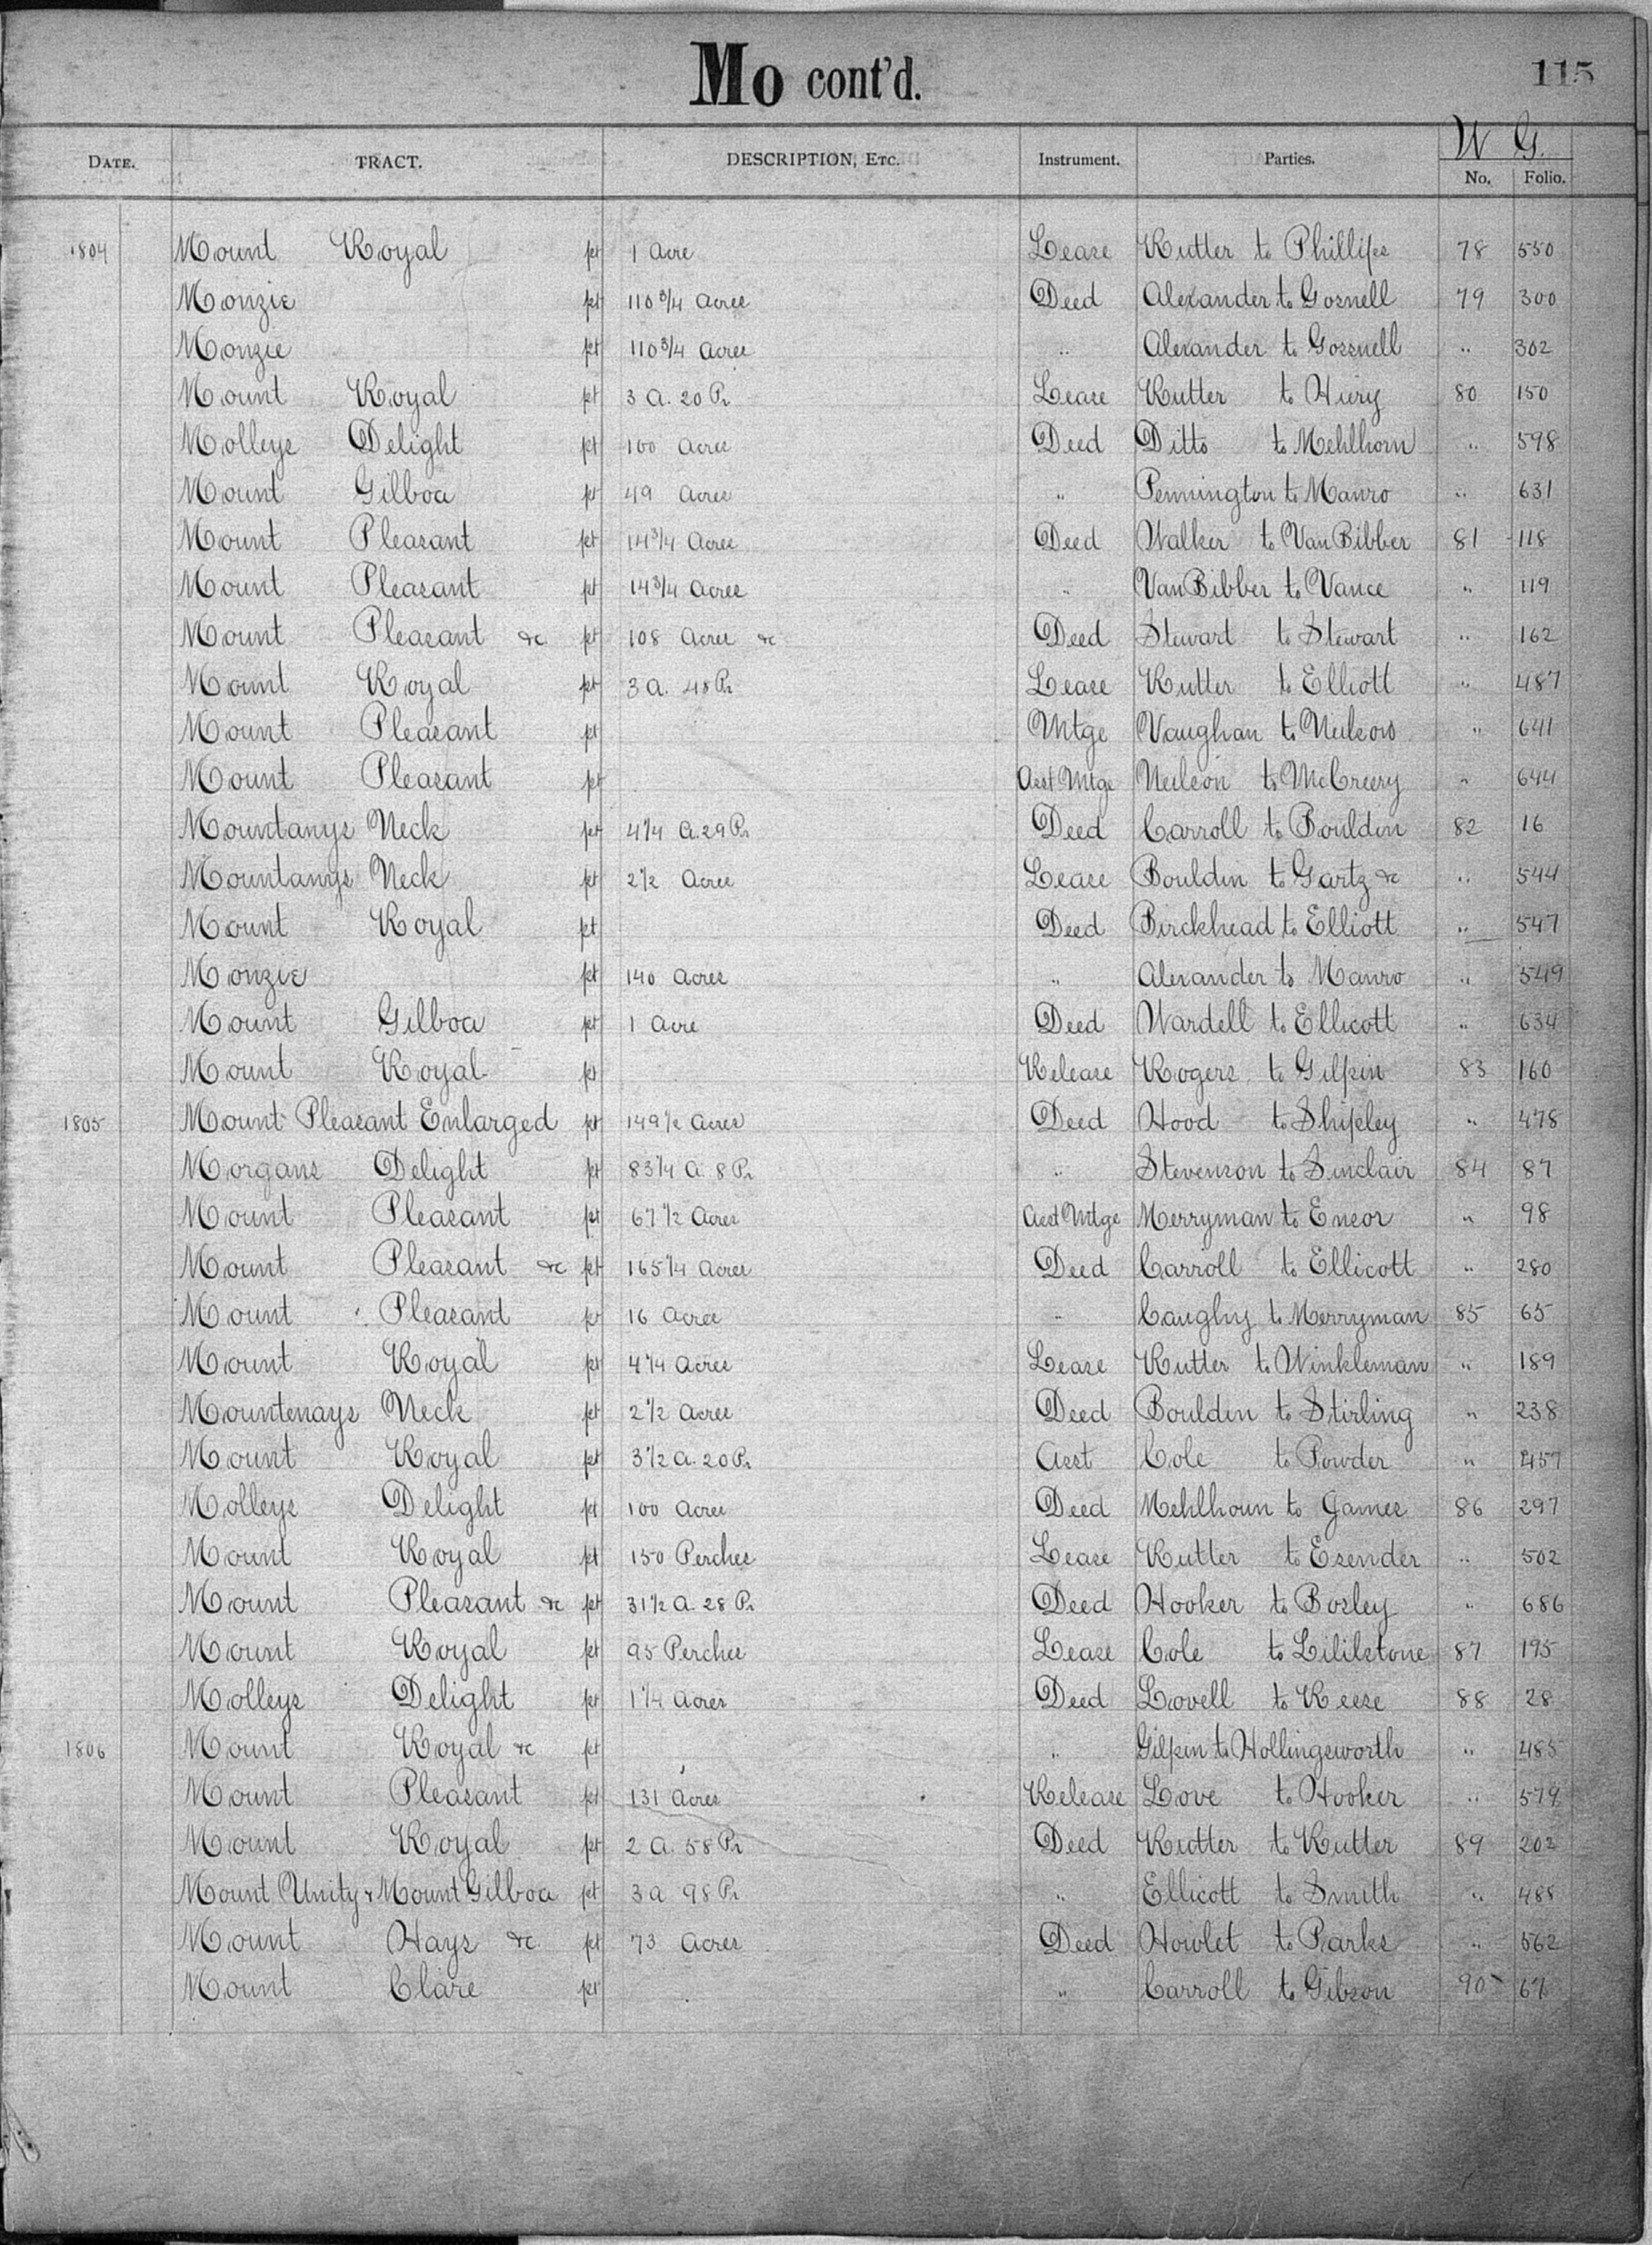 Mo cont'd.
115
W G.
DATE. TRACT. DESCRIPTION, ETC. Instrument. Parties. No. Folio.
1804 Mount Royal pt 1 Acre Lease Rutter to Phillips 78 550
Monzie pt 110 3/4 Acres Deed Alexander to Gosnell 79 300
Monzie pt 110 3/4 Acres " Alexander to Gossnell " 302
Mount Royal pt 3 A. 20 Pr Lease Rutter to 80 150
Molleys Delight pt 100 Acres Deed Ditto to Mehlhorn " 598
Mount Gilboa pt 49 Acres " Pennington to Manro " 631
Mount Pleasant pt 14 3/4 Acres Deed Walker to VanBibber 81 118
Mount Pleasant pt 14 3/4 Acres " VanBibber to Vance " 119
Mount Pleasant &c pt 108 Acres &c Deed Stewart to Stewart " 162
Mount Royal pt 3 A. 48 Pr Lease Rutter to Elliott " 487
Mount Pleasant pt Mtge Vaughan to " 641
Mount Pleasant pt Asst Mtge Neilson to McCreery " 644
Mountanys Neck pt 4 1/4 A. 29 Pr Deed Carroll to Bouldin 82 16
Mountanys Neck pt 2 1/2 Acres Lease Bouldin to Gartz &c " 544
Mount Royal pt Deed Birckhead to Elliott " 547
Monzie pt 140 Acres " Alexander to Manro " 549
Mount Gilboa pt 1 Acre Deed Wardell to Ellicott " 634
Mount Royal pt Release Rogers to Gilpin 83 160
1805 Mount Pleasant Enlarged pt 149 1/2 Acres Deed Hood to Shipley " 478
Morgans Delight pt 83 1/4 A. 8 Pr " Stevenson to Sinclair 84 87
Mount Pleasant pt 67 1/2 Acres Asst Mtge Merryman to Ensor " 98
Mount Pleasant &c pt 165 1/4 Acres Deed Carroll to Ellicott " 280
Mount Pleasant pt 16 Acres " Caughy to Merryman 85 65
Mount Royal pt 4 1/4 Acres Lease Rutter to Winkleman " 189
Mountenays Neck pt 2 1/2 Acres Deed Bouldin to Stirling " 238
Mount Royal pt 3 1/2 A. 20 Pr Asst Cole to Powder " 457
Molleys Delight pt 100 Acres Deed Mehlhoun to James 86 297
Mount Royal pt 150 Perches Lease Rutter to Esender " 502
Mount Pleasant &c pt 31 1/2 A. 28 Pr Deed Hooker to Bosley " 686
Mount Royal pt 95 Perches Lease Cole to Lililstone 87 195
Molleys Delight pt 1 1/4 Acres Deed Lovell to Reese 88 28
1806 Mount Royal &c pt " Gilpin to Hollingsworth " 485
Mount Pleasant pt 131 Acres Release Love to Hooker " 579
Mount Royal pt 2 A. 58 Pr Deed Rutter to Rutter 89 202
Mount Unity & Mount Gilboa pt 3 a 98 Pr " Ellicott to Smith " 488
Mount Hays &c pt 73 Acres Deed Howlet to Parks " 562
Mount Clare pt " Carroll to Gibson 90 67